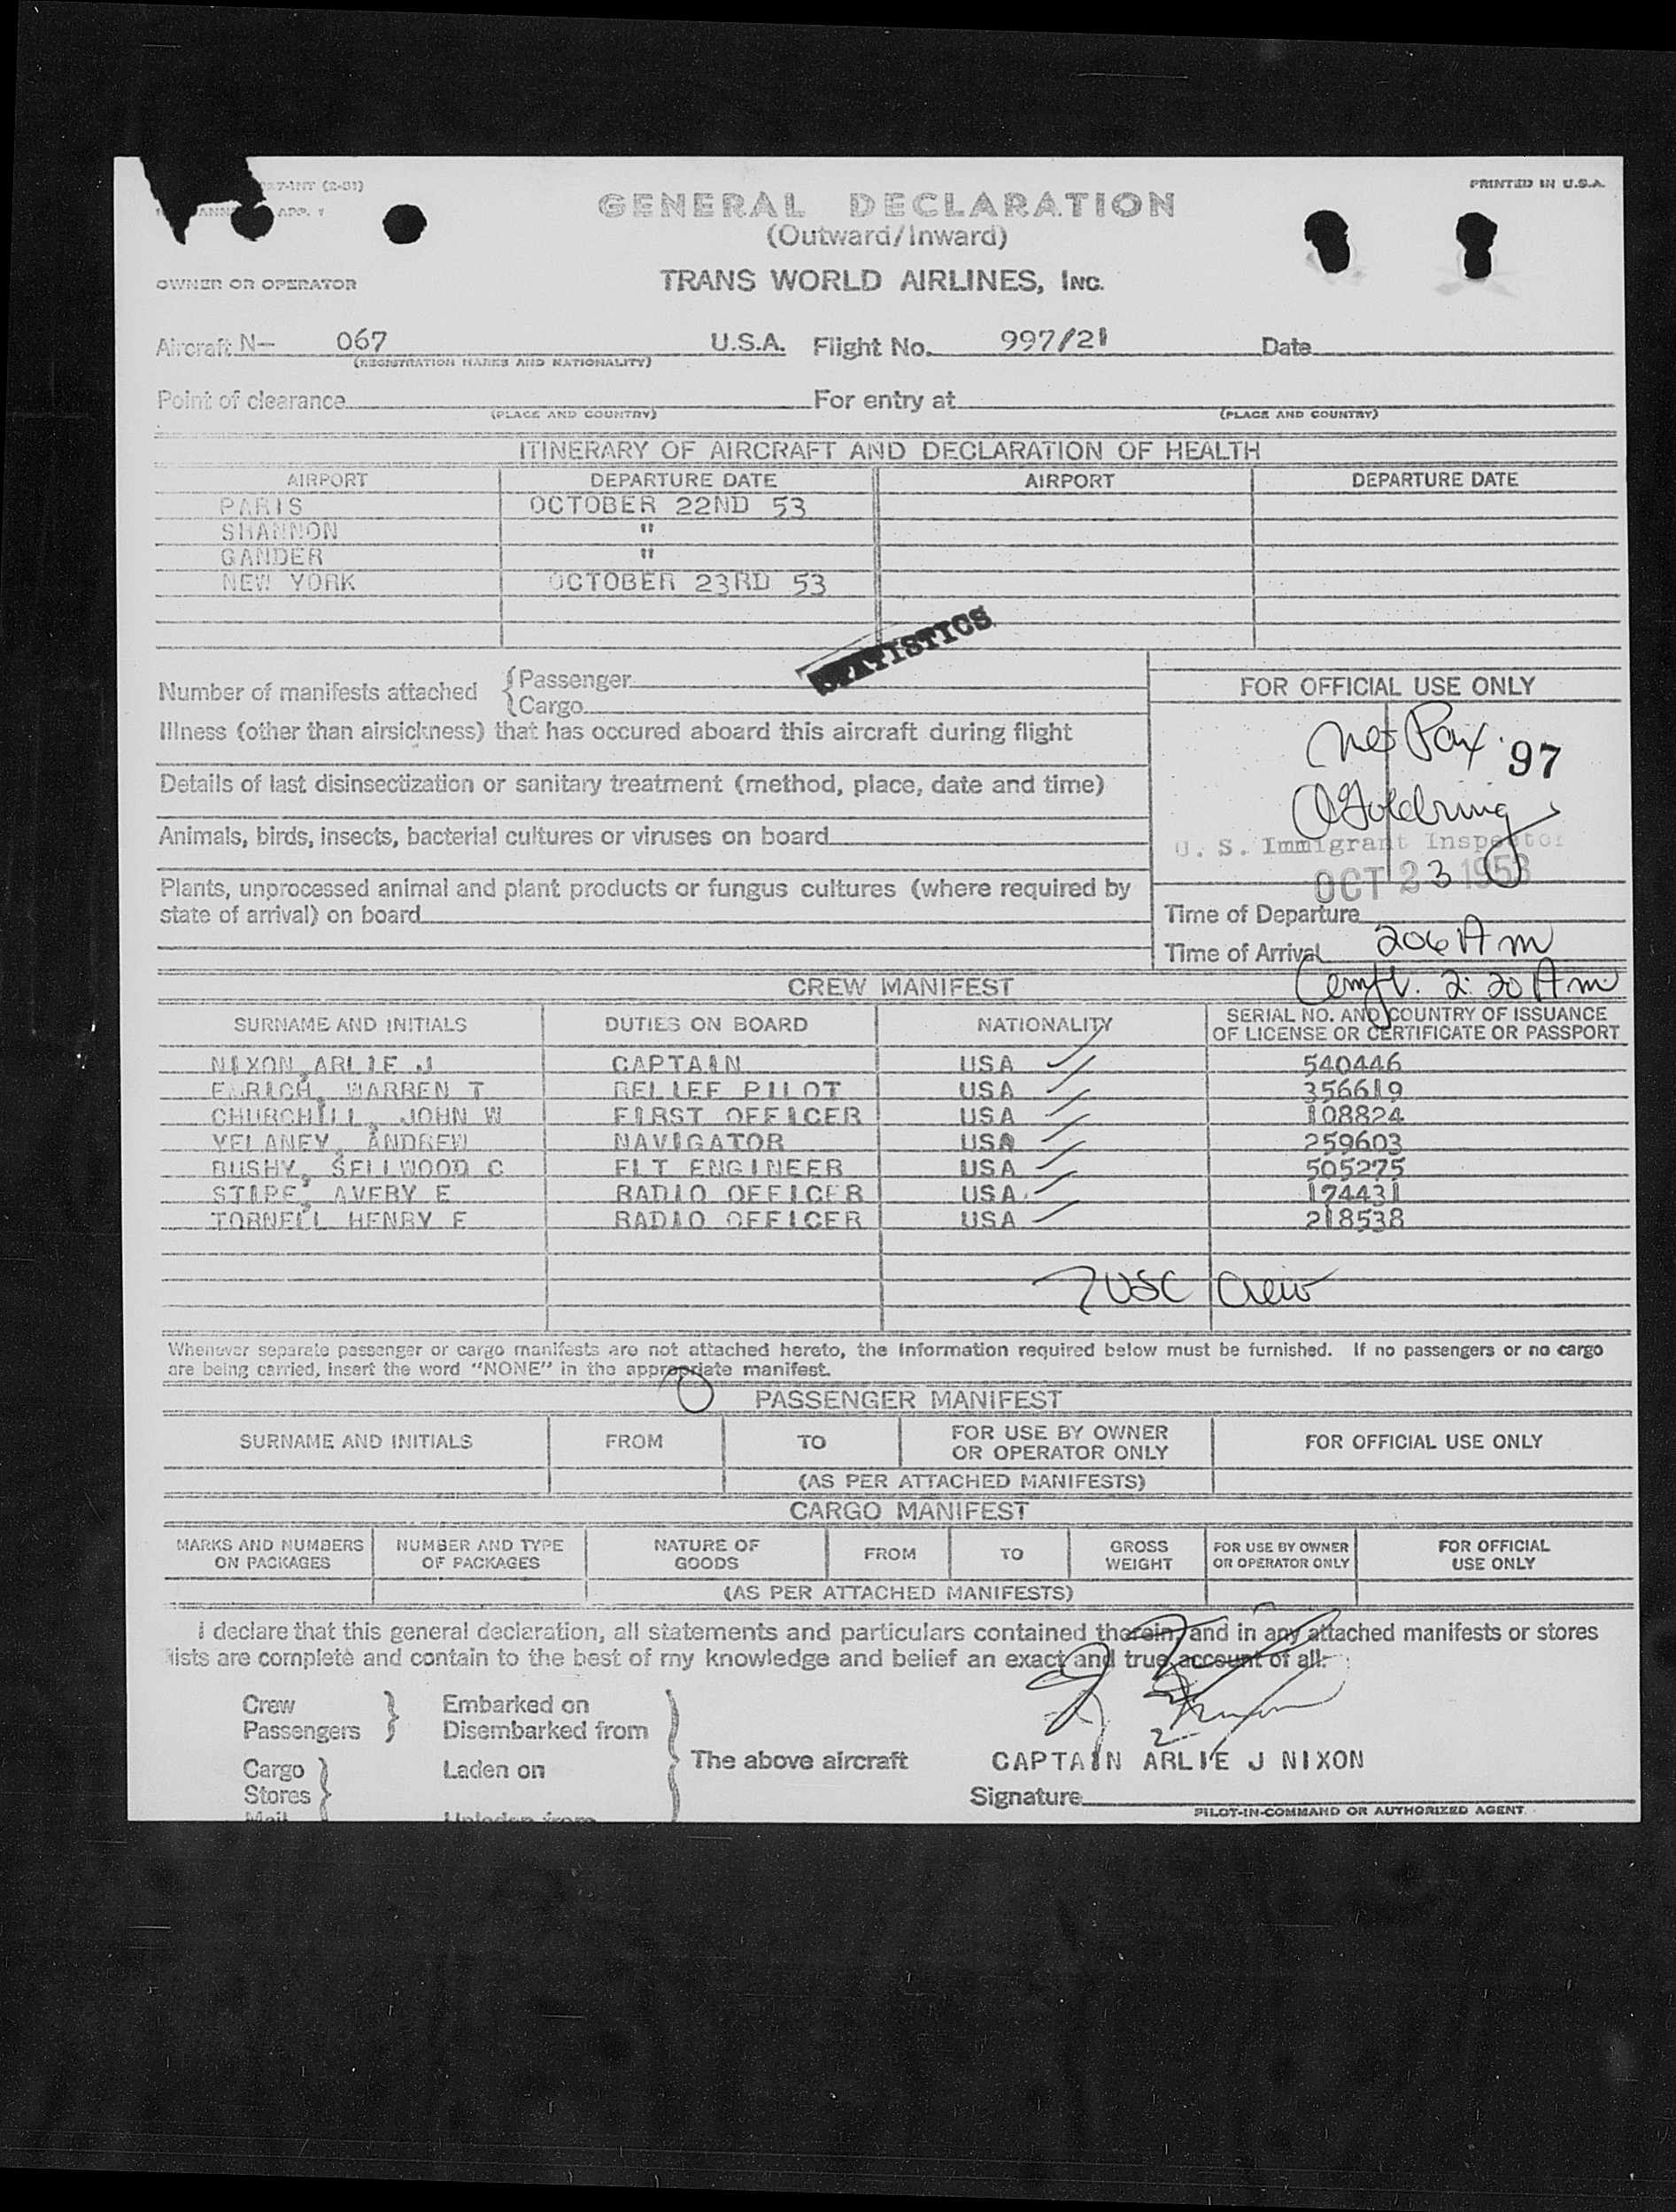 27-INT (2-51)
PRINTED IN U.S.A.
APP. 1
GENERAL DECLARATION
(Outward/Inward)
OWNER OR OPERATOR
TRANS WORLD AIRLINES, INC.
Aircraft N— 067 U.S.A. Flight No. 997/21 Date
(REGISTRATION MARKS AND NATIONALITY)
Point of clearance For entry at
(PLACE AND COUNTRY) (PLACE AND COUNTRY)
ITINERARY OF AIRCRAFT AND DECLARATION OF HEALTH
AIRPORT DEPARTURE DATE AIRPORT DEPARTURE DATE
PARIS OCTOBER 22ND 53
SHANNON "
GANDER "
NEW YORK OCTOBER 23RD 53
STATISTICS
Number of manifests attached { Passenger
Cargo
FOR OFFICIAL USE ONLY
Illness (other than airsickness) that has occured aboard this aircraft during flight
Pax. 97
Details of last disinsectization or sanitary treatment (method, place, date and time)
Goldring
Animals, birds, insects, bacterial cultures or viruses on board
U. S. Immigrant Inspector
OCT 23 1953
Plants, unprocessed animal and plant products or fungus cultures (where required by
state of arrival) on board
Time of Departure
Time of Arrival 206 AM
2:20 AM
CREW MANIFEST
SURNAME AND INITIALS DUTIES ON BOARD NATIONALITY SERIAL NO. AND COUNTRY OF ISSUANCE
OF LICENSE OR CERTIFICATE OR PASSPORT
NIXON, ARLIE J CAPTAIN USA 540446
WARREN T RELIEF PILOT USA 356619
CHURCHILL, JOHN W FIRST OFFICER USA 108824
YELANEY, ANDREW NAVIGATOR USA 259603
BUSHY, SELLWOOD C FLT ENGINEER USA 505275
STIPE, AVERY E RADIO OFFICER USA 174431
TORNELL HENRY F RADIO OFFICER USA 218538
7 USC Crew
Whenever separate passenger or cargo manifests are not attached hereto, the information required below must be furnished. If no passengers or no cargo
are being carried, insert the word "NONE" in the appropriate manifest.
PASSENGER MANIFEST
SURNAME AND INITIALS FROM TO FOR USE BY OWNER
OR OPERATOR ONLY FOR OFFICIAL USE ONLY
(AS PER ATTACHED MANIFESTS)
CARGO MANIFEST
MARKS AND NUMBERS
ON PACKAGES NUMBER AND TYPE
OF PACKAGES NATURE OF
GOODS FROM TO GROSS
WEIGHT FOR USE BY OWNER
OR OPERATOR ONLY FOR OFFICIAL
USE ONLY
(AS PER ATTACHED MANIFESTS)
I declare that this general declaration, all statements and particulars contained therein, and in any attached manifests or stores
lists are complete and contain to the best of my knowledge and belief an exact and true account of all:
Crew Embarked on
Passengers Disembarked from
Cargo Laden on The above aircraft CAPTAIN ARLIE J NIXON
Stores Signature
Mail Unladen from PILOT-IN-COMMAND OR AUTHORIZED AGENT